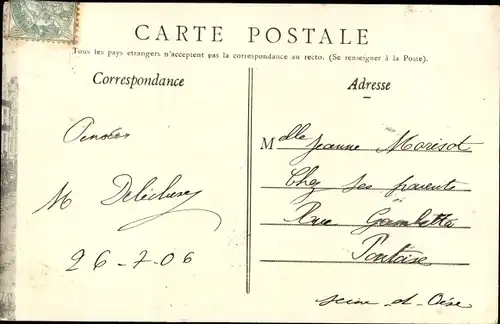 CARTE POSTALE
Tous les pays étrangers n'acceptent pas la correspondance au recto. (Se renseigner à la Poste).
Correspondance
Adresse
Mdlle Jeanne Morisot
Chez ses parents
Rue Gambetta
Pontoise
Seine-et-Oise
M
26-7-06